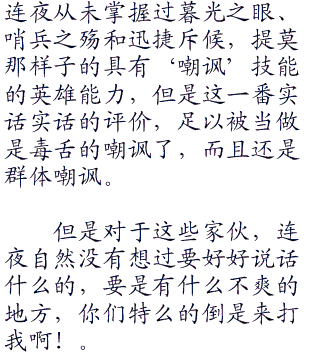 连夜从未掌握过暮光之眼、
哨兵之殇和迅捷斥候，提莫
那样子的具有‘嘲讽’技能
的英雄能力，但是这一番实
话实话的评价，足以被当做
是毒舌的嘲讽了，而且还是
群体嘲讽。
但是对于这些家伙，连
夜自然没有想过要好好说话
什么的，要是有什么不爽的
地方，你们特么的倒是来打
我啊！。